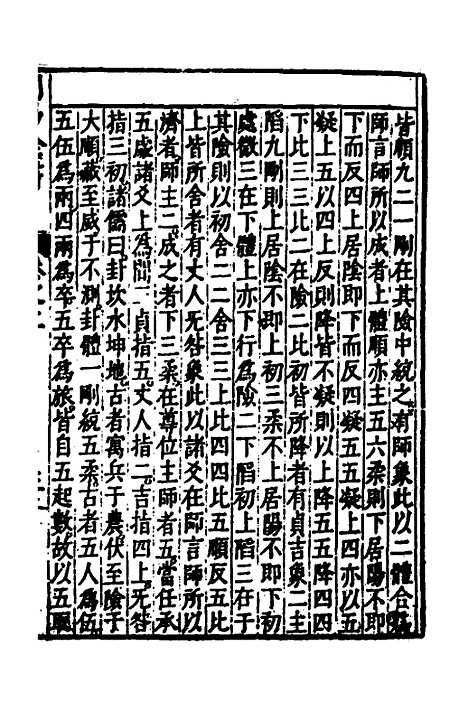 皆順九二一剛在其險中統之有師象此以二體合
師言師所以成者上體順亦主五六柔則下居陽不即
下而反四上居陰即下而反四疑五五疑上四亦以五
疑上五以四上反則降皆不疑則以上降五五降四四
下比三三比二在險二比初皆所降者有貞吉象二主
陷九剛則上居陰不即上初三柔不上居陽不即下初
處微三在下體上亦下行為險二下陷初上陷三在于
其險則以初舍二二舍三三上比四四比五順反五比
上皆所舍者有丈人无咎象此以諸爻在師言師所以
濟者師主二成之者下三柔在尊位主師者五當任承
五處諸爻上為間二貞指五丈人指二吉指四上无咎
指三初諸儒曰卦坎水坤地古者寓兵于農伏至險于
大順藏至威于不測卦體一剛統五柔古者五人為伍
五伍為兩四兩為卒五卒為旅皆自五起數故以五